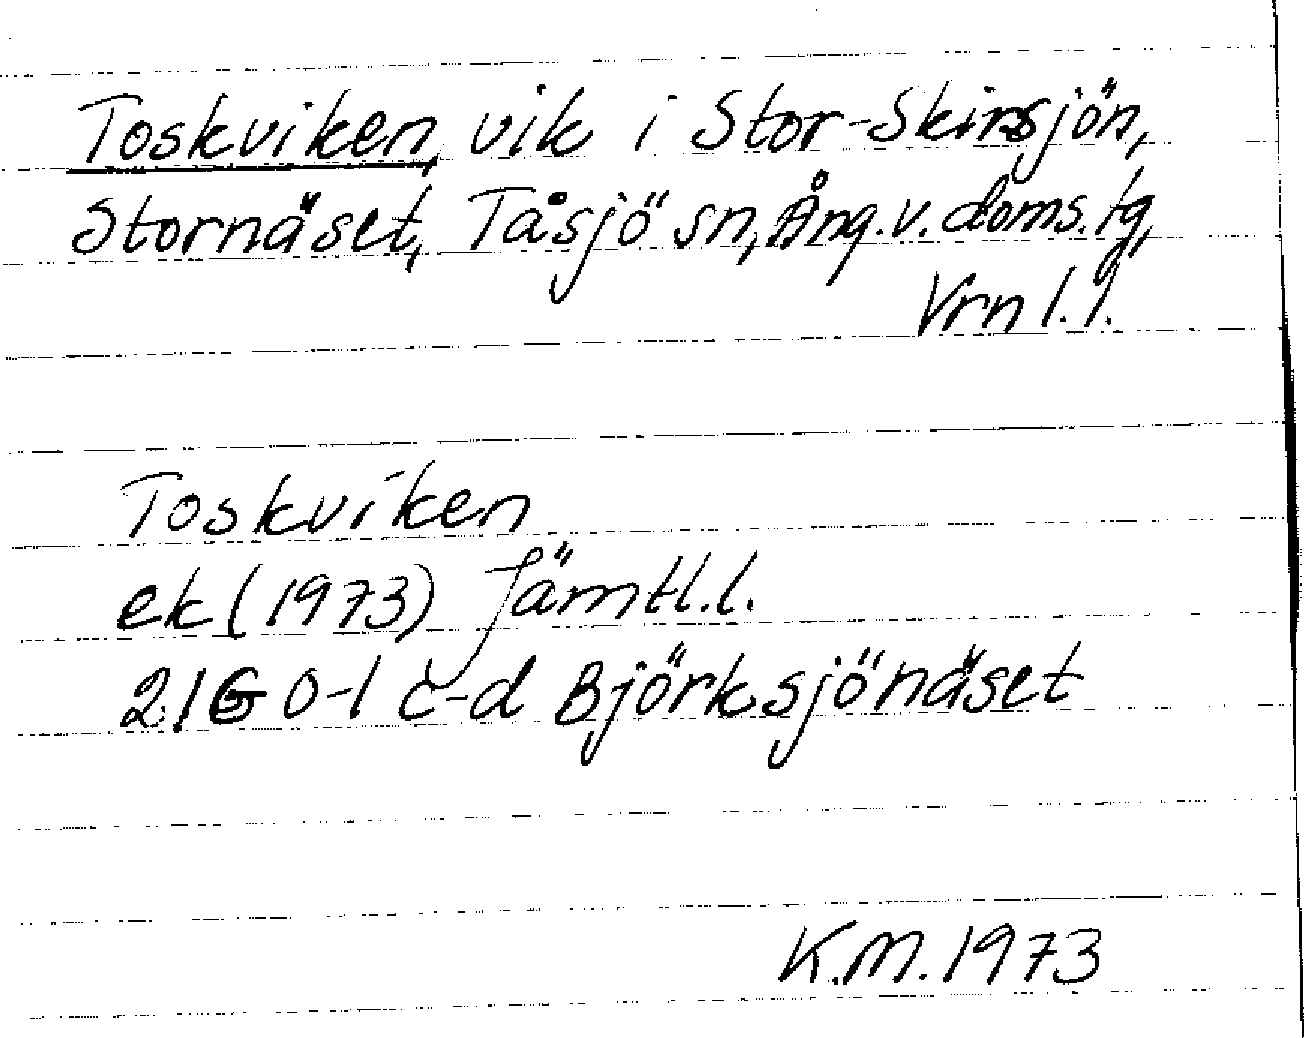 Toskviken, vik i Stor-Skirsjön,
Stornäset, Tåsjö sn, Ång.v.doms.tg,
Vrn l.l.
Toskviken
ek (1973) Jämtl.l.
21G 0-1 c-d Björksjönäset
K.M. 1973